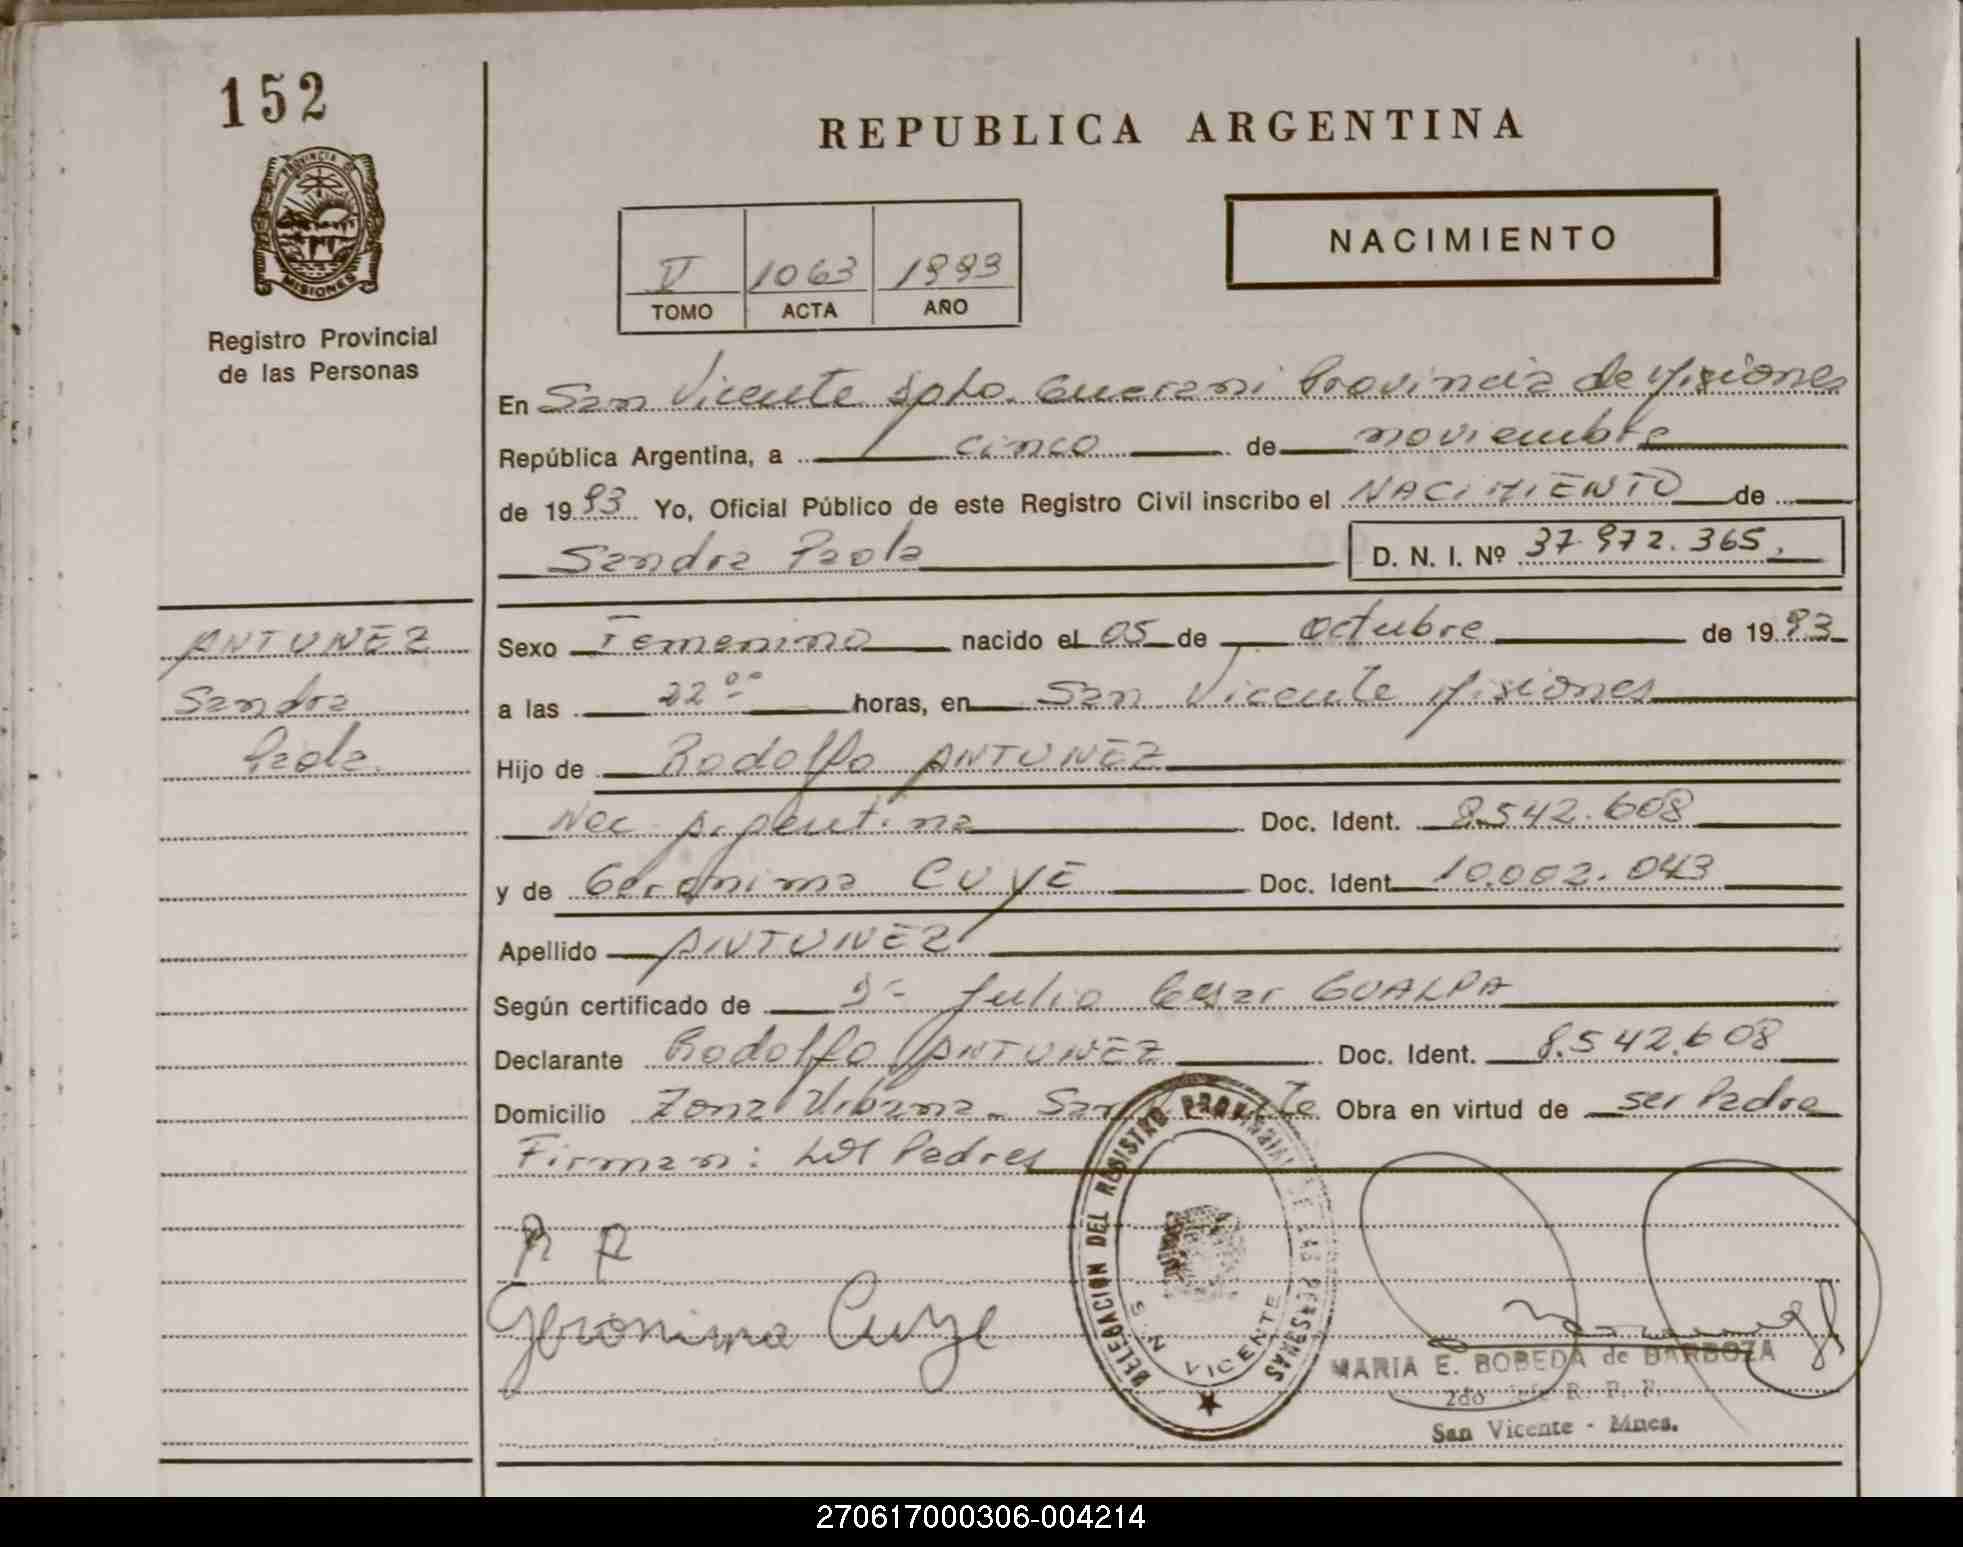 152
PROVINCIA DE
MISIONES
Registro Provincial
de las Personas
REPUBLICA ARGENTINA
NACIMIENTO
V 1063 1993
TOMO ACTA AÑO
En San Vicente Dpto. Guarani Provincia de Misiones
República Argentina, a cinco de noviembre
de 1993 Yo, Oficial Público de este Registro Civil inscribo el NACIMIENTO de
Sandra Paola D. N. I. Nº 37.972.365.
ANTUNEZ
Sandra
Paola
Sexo Femenino nacido el 05 de Octubre de 1993
a las 22°° horas, en San Vicente Misiones
Hijo de Rodolfo ANTUNEZ
Nac. Argentina Doc. Ident. 8.542.608
y de Geronima CUYE Doc. Ident. 10.002.043
Apellido ANTUNEZ
Según certificado de Julio Cesar GUALPA
Declarante Rodolfo ANTUNEZ Doc. Ident. 8.542.608
Domicilio Zona Urbana - San Obra en virtud de ser Padre
Firman: Los Padres
R R
Geronima Cuye
DELEGACION DEL REGISTRO PROVINCIAL DE LAS PERSONAS
SAN VICENTE
MARIA E. BOBEDA de BARBOZA
2do Jefe R. P. P.
San Vicente - Mnes.
270617000306-004214